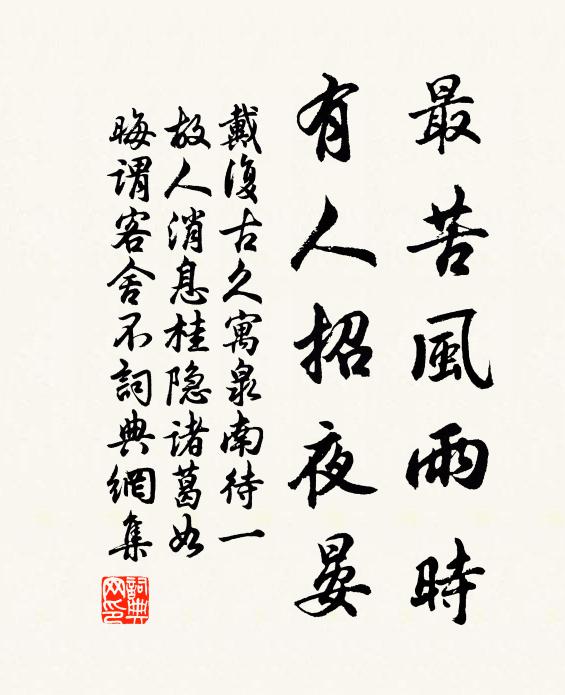 最苦風雨時
有人招夜宴
戴復古久寓泉南待一
故人消息桂隐諸葛如
晦謂客舍不詞典網集
詞典網印